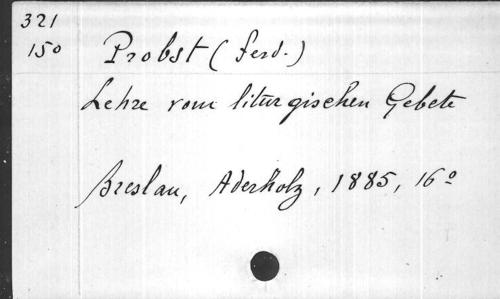 321
150 Probst (Ferd.)
Lehre vom liturgischen Gebete
Breslau, Aderholz, 1885, 16º